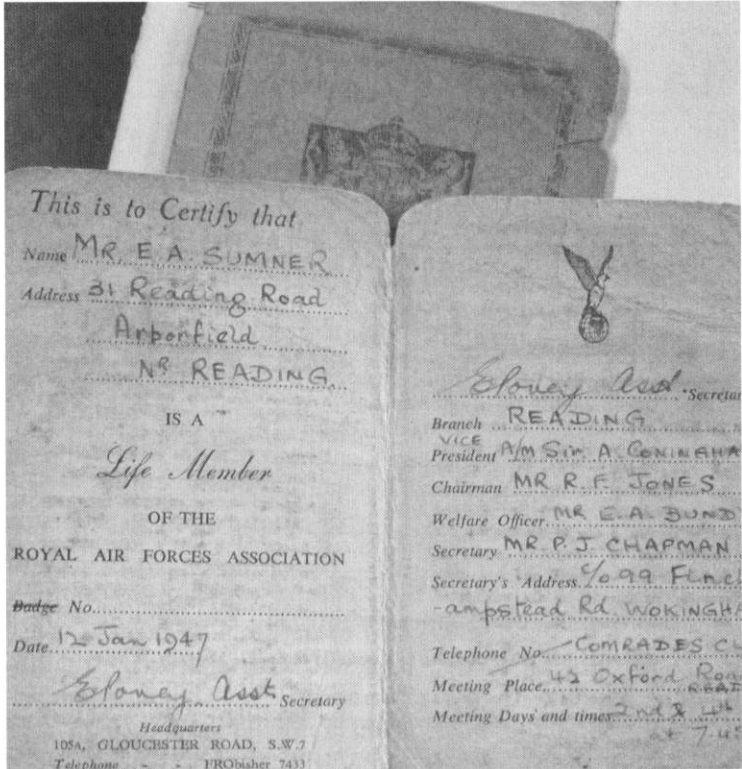 This is to Certify that
Name MR. E. A. SUMNER
Address 31 Reading Road
Arborfield
NR READING.
IS A
Life Member
OF THE
ROYAL AIR FORCES ASSOCIATION
Badge No.
Date 12 Jan 1947
Asst Secretary
Headquarters
105A, GLOUCESTER ROAD, S.W.7
Telephone - - FRObisher 7433
Asst Secretar
Branch READING
VICE
President A/M Sir A. CONINGHA
Chairman MR R. F. JONES
Welfare Officer MR E. A. BUND
Secretary MR. P. J. CHAPMAN
Secretary's Address C/o 99 Finch
-ampstead Rd WOKINGHA
Telephone No. COMRADES CL
Meeting Place 42 Oxford Road
READ
Meeting Days and times 2nd & 4th
at 7.45